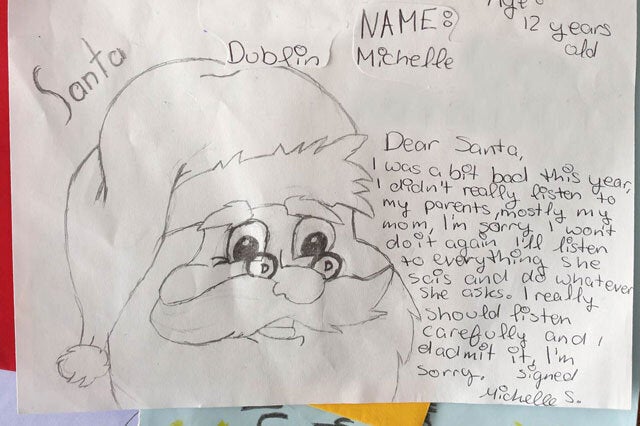 Santa
Dublin
NAME:
Michelle
Age:
12 years
old
Dear Santa,
I was a bit bad this year,
I didn't really listen to
my parents, mostly my
mom, I'm sorry, I won't
do it again I'll listen
to everything she
sais and do whatever
she asks. I really
should listen
carefully and I
dadmit it, I'm
sorry. signed
Michelle S.